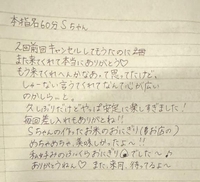 本指名60分 Sちゃん
2回前回キャンセルしてもうたのに
また来てくれて本当にありがとう♡
もう来てくれへんかなあって思ってたけど、
しゃーない言うてくれてなんて心が広い
のかしら…。
久しぶりだけどやっぱ安定に楽しすぎました!
毎回差し入れもありがとね!!
Sちゃんの作ったお米のおにぎり
めちゃめちゃ、美味しかったよ〜!!
私好みのふっくらおにぎりでした〜♪
ありがとうねん♡ また、来月、待ってるよ〜